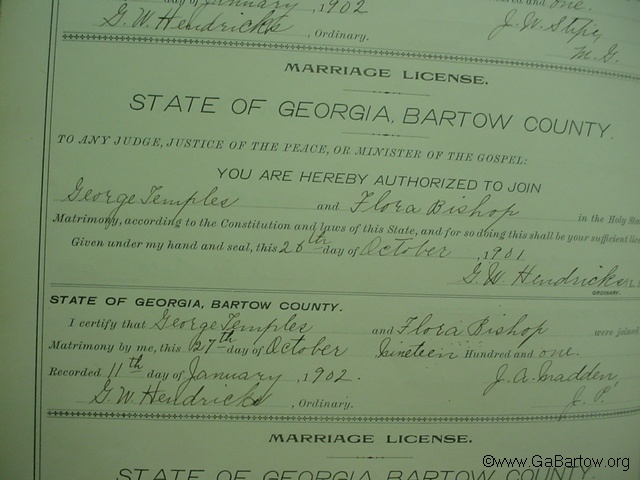 day of January , 1902
and one.
G. W. Hendricks , Ordinary.
J. W. Stipe
M. G.
MARRIAGE LICENSE.
STATE OF GEORGIA, BARTOW COUNTY.
TO ANY JUDGE, JUSTICE OF THE PEACE, OR MINISTER OF THE GOSPEL:
YOU ARE HEREBY AUTHORIZED TO JOIN
George Temples and Flora Bishop in the Holy
Matrimony, according to the Constitution and laws of this State, and for so doing this shall be your sufficient
Given under my hand and seal, this 26th day of October , 1901
G. W. Hendricks L.
ORDINARY.
STATE OF GEORGIA, BARTOW COUNTY.
I certify that George Temples and Flora Bishop were joined
Matrimony by me, this 27th day of October Nineteen Hundred and one.
Recorded 11th day of January , 1902. J. A. Madden,
G. W. Hendricks , Ordinary. J. P.
MARRIAGE LICENSE.
STATE OF GEORGIA, BARTOW COUNTY.
©www.GaBartow.org